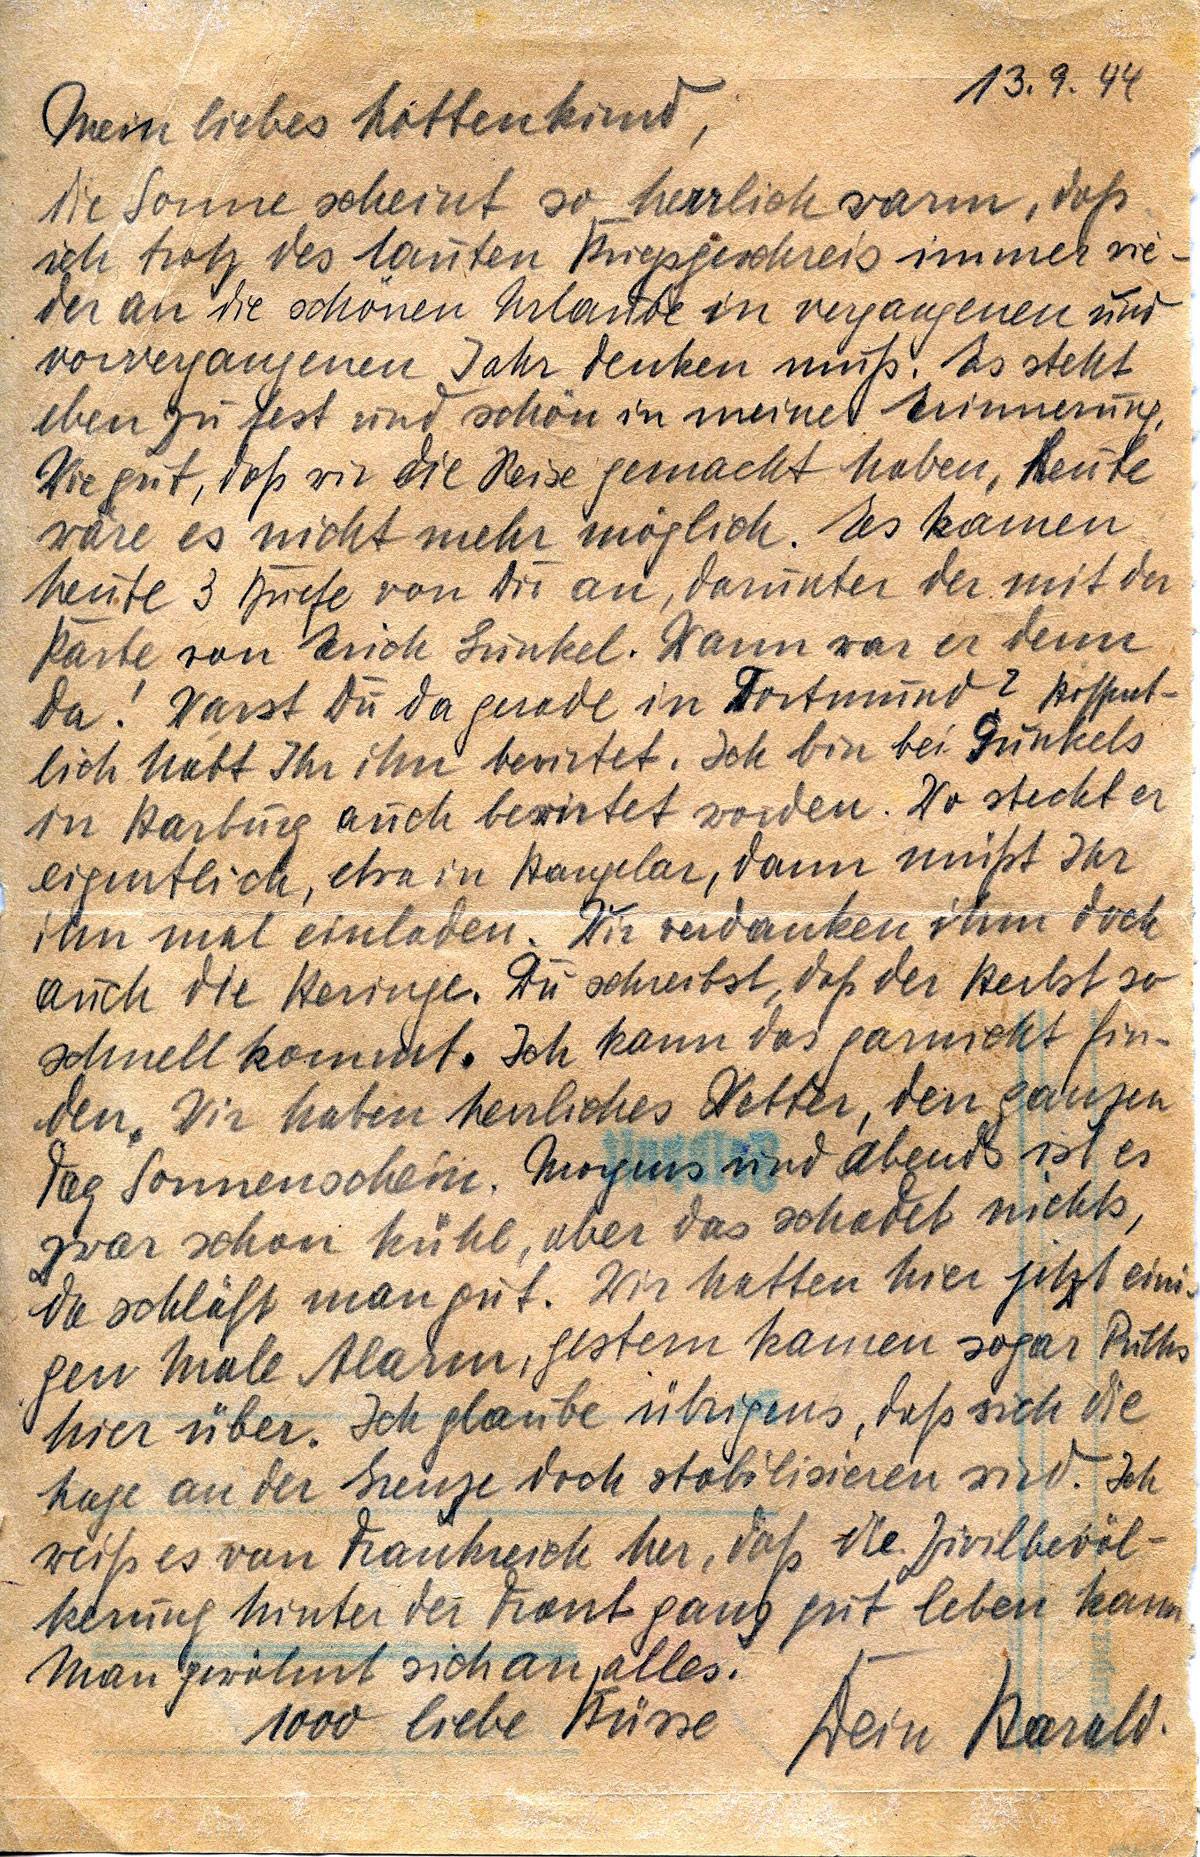 13.9.44
Mein liebes Lottenkind,
die Sonne scheint so herrlich warm, daß
ich trotz des lauten Kriegsgeschreis immer wie-
der an die schönen Urlaube in vergangenen und
vorvergangenen Jahr denken muß. Es steht
eben zu fest und schön in meiner Erinnerung.
Wie gut, daß wir die Reise gemacht haben, heute
wäre es nicht mehr möglich. Es kamen
heute 3 Briefe von Dir an, darunter der mit der
Karte von Erich Gunkel. Wann war er denn
da! Warst Du da gerade in Dortmund? Hoffent-
lich habt Ihr ihn bewirtet. Ich bin bei Gunkels
in Harburg auch bewirtet worden. Wo steckt er
eigentlich, etwa in Hangelar, dann müßt Ihr
ihn mal einladen. Wir verdanken ihm doch
auch die Heringe. Du schreibst, daß der Herbst so
schnell kommt. Ich kann das garnicht fin-
den. Wir haben herrliches Wetter, den ganzen
Tag Sonnenschein. Morgens und abends ist es
zwar schon kühl, aber das schadet nichts,
da schläft man gut. Wir hatten hier jetzt eini-
gen Male Alarm, gestern kamen sogar Pulks
hier über. Ich glaube übrigens, daß sich die
Lage an der Grenze doch stabilisieren wird. Ich
weiß es von Frankreich her, daß die Zivilbevöl-
kerung hinter der Front ganz gut leben kann
Man gewöhnt sich an alles.
1000 liebe Küsse Dein Harald.